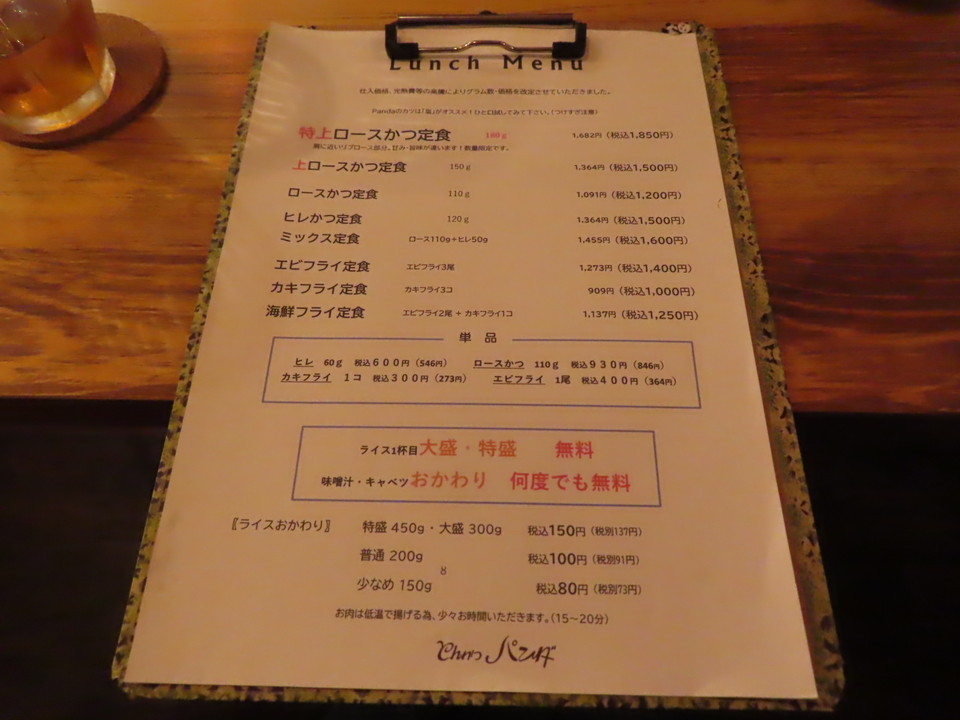 Lunch Menu
仕入価格、光熱費等の高騰によりグラム数・価格を改定させていただきました。
Pandaのカツは「塩」がオススメ！ひと口試してみて下さい。(つけすぎ注意)
特上ロースかつ定食 180g 1,682円（税込1,850円）
肩に近いリブロース部分。甘み・旨味が違います！数量限定です。
上ロースかつ定食 150g 1,364円（税込1,500円）
ロースかつ定食 110g 1,091円（税込1,200円）
ヒレかつ定食 120g 1,364円（税込1,500円）
ミックス定食 ロース110g＋ヒレ50g 1,455円（税込1,600円）
エビフライ定食 エビフライ3尾 1,273円（税込1,400円）
カキフライ定食 カキフライ3コ 909円（税込1,000円）
海鮮フライ定食 エビフライ2尾 + カキフライ1コ 1,137円（税込1,250円）
単 品
ヒレ 60g 税込６００円（546円） ロースかつ 110g 税込９３０円（846円）
カキフライ １コ 税込３００円（273円） エビフライ 1尾 税込４００円（364円）
ライス1杯目大盛・特盛 無料
味噌汁・キャベツおかわり 何度でも無料
〖ライスおかわり〗 特盛 450g・大盛 300g 税込150円（税別137円）
普通 200g 税込100円（税別91円）
8
少なめ 150g 税込80円（税別73円）
お肉は低温で揚げる為、少々お時間いただきます。（15～20分）